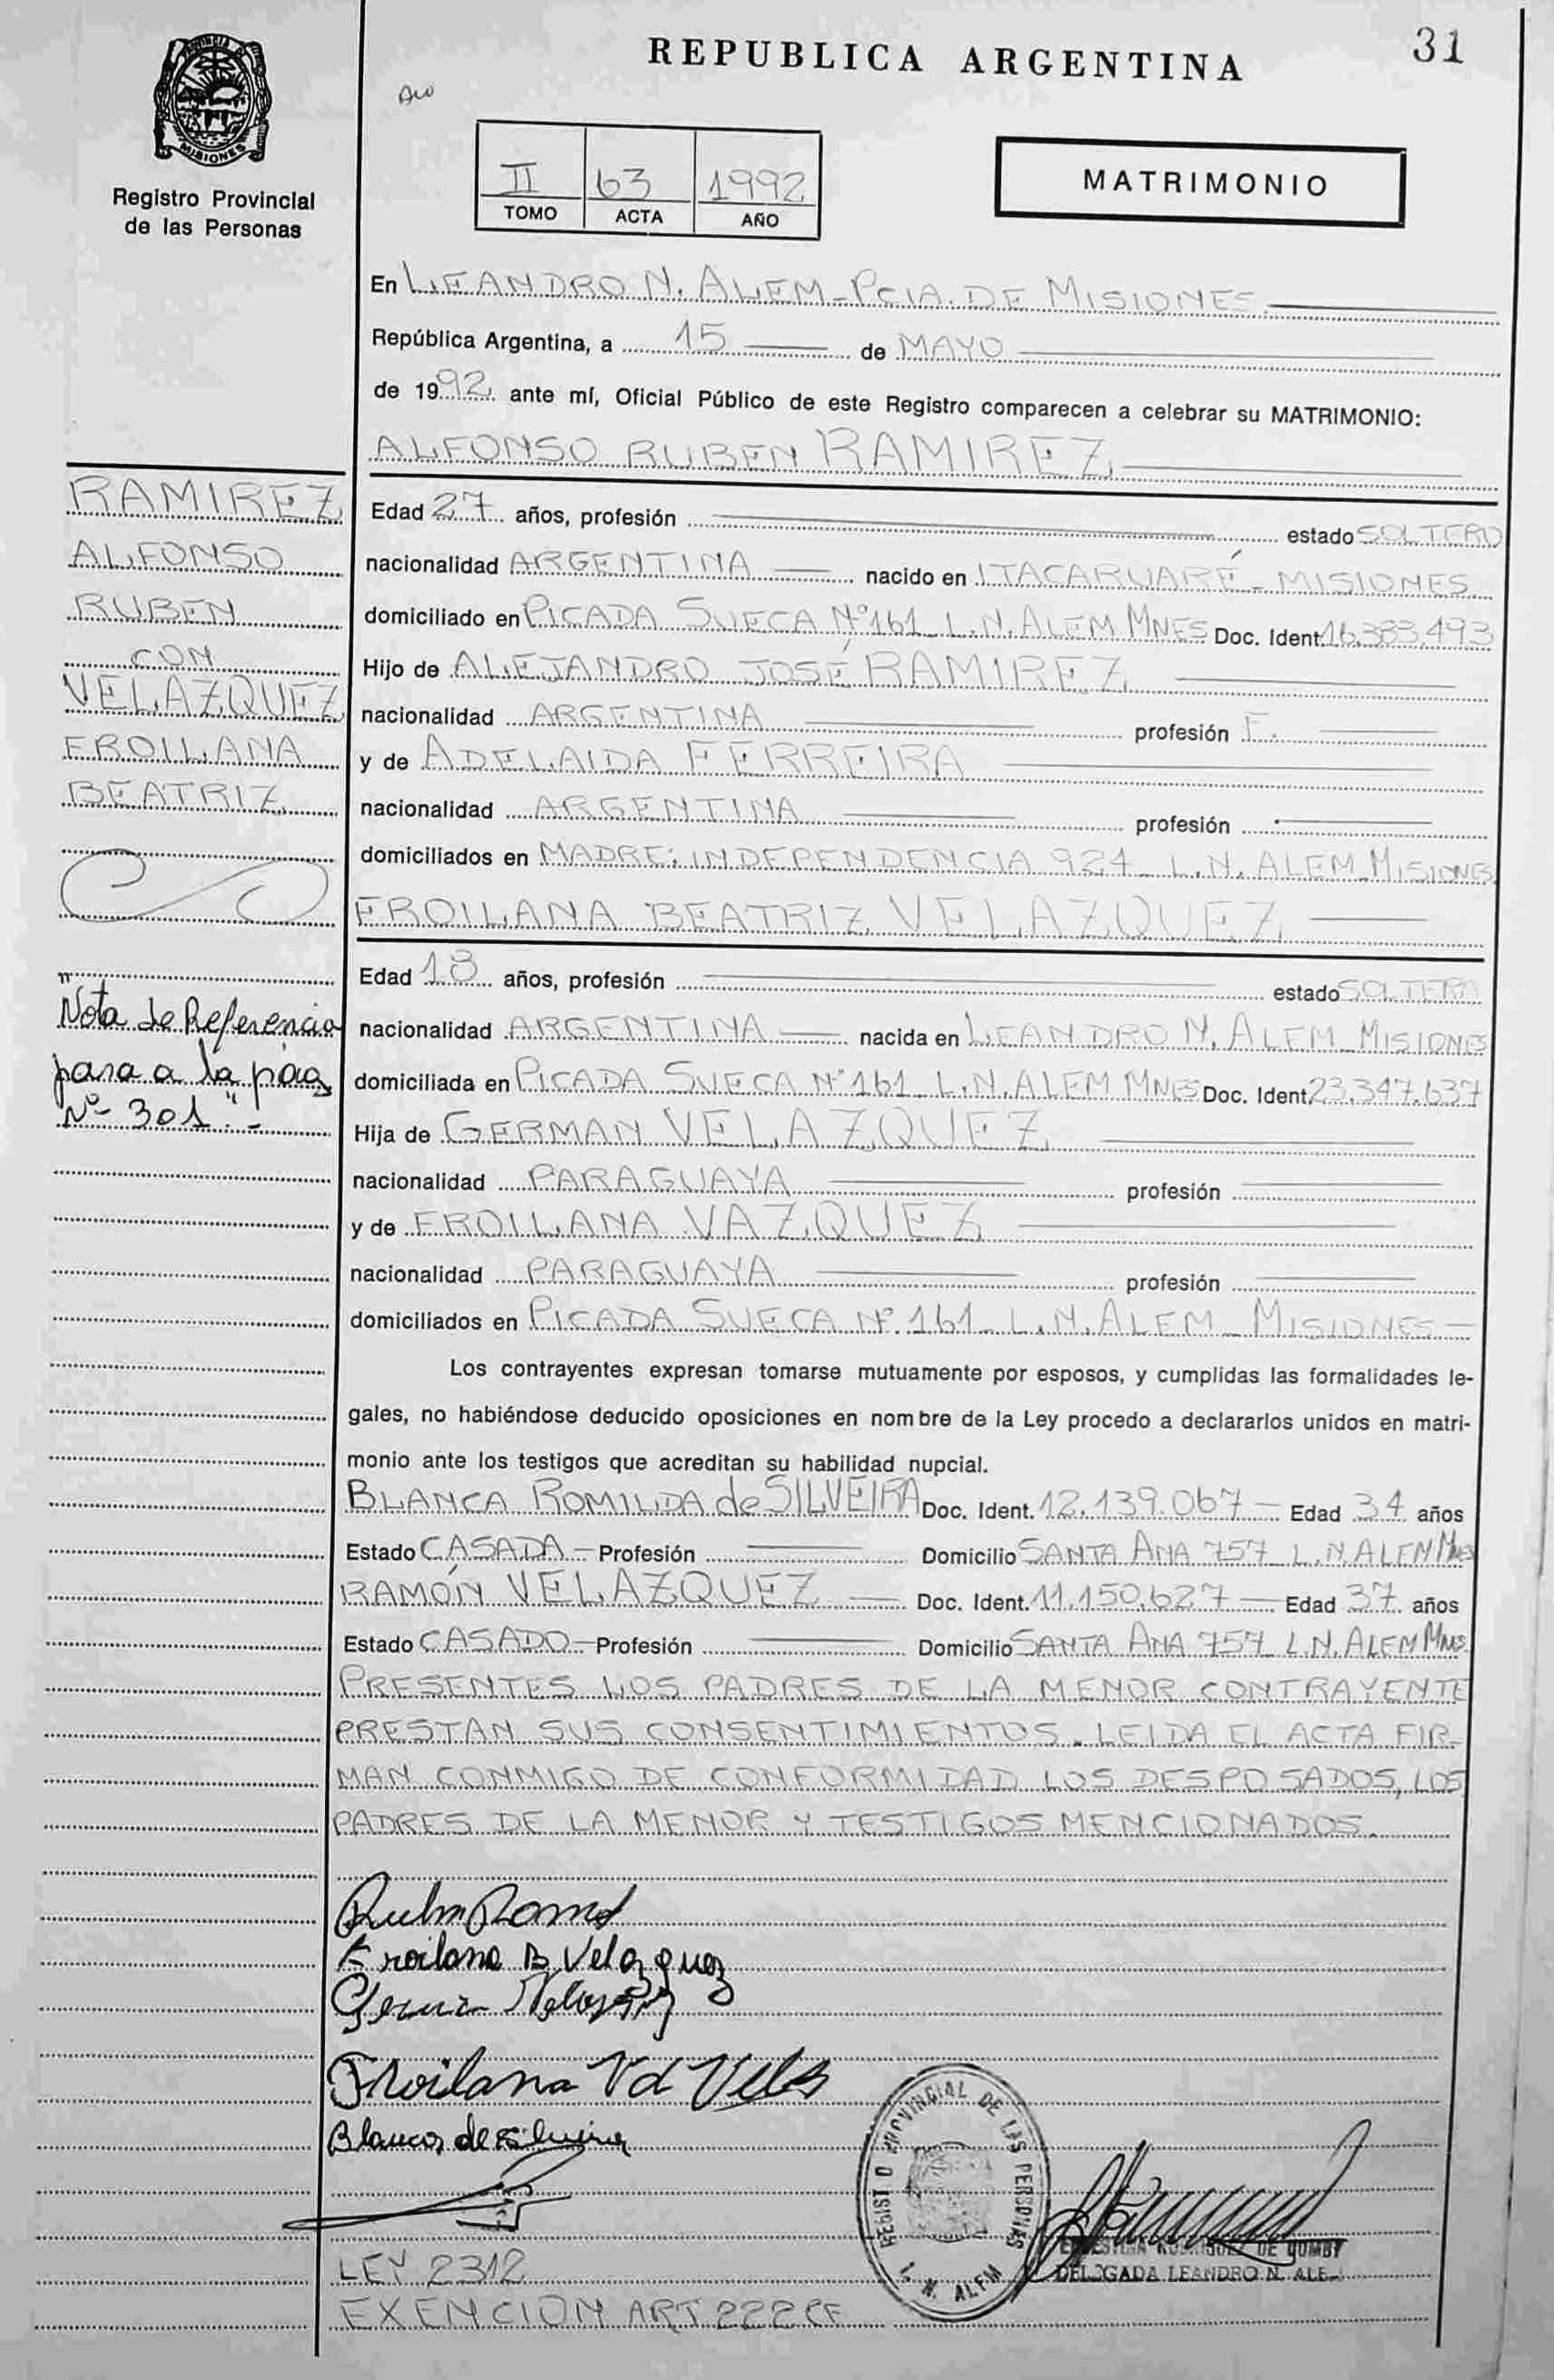 REPUBLICA ARGENTINA
31
MISIONES
Registro Provincial
de las Personas
II 63 1992
TOMO ACTA AÑO
MATRIMONIO
En LEANDRO N. ALEM - PCIA. DE MISIONES.
República Argentina, a 15 de MAYO
de 1992 ante mí, Oficial Público de este Registro comparecen a celebrar su MATRIMONIO:
ALFONSO RUBEN RAMIREZ
RAMIREZ
ALFONSO
RUBEN
CON
VELAZQUEZ
FROILANA
BEATRIZ
"Nota de Referencia
pasa a la pág.
Nº 301".-
Edad 27 años, profesión estado SOLTERO
nacionalidad ARGENTINA nacido en ITACARUARÉ - MISIONES
domiciliado en PICADA SUECA Nº 161 L.N. ALEM MNES Doc. Ident. 16.383.493
Hijo de ALEJANDRO JOSÉ RAMIREZ
nacionalidad ARGENTINA profesión F.
y de ADELAIDA FERREIRA
nacionalidad ARGENTINA profesión
domiciliados en MADRE: INDEPENDENCIA 924 - L.N. ALEM - MISIONES
FROILANA BEATRIZ VELAZQUEZ
Edad 18 años, profesión estado SOLTERA
nacionalidad ARGENTINA nacida en LEANDRO N. ALEM - MISIONES
domiciliada en PICADA SUECA Nº 161 L.N. ALEM MNES Doc. Ident. 23.347.637
Hija de GERMAN VELAZQUEZ
nacionalidad PARAGUAYA profesión
y de FROILANA VAZQUEZ
nacionalidad PARAGUAYA profesión
domiciliados en PICADA SUECA Nº 161 - L.N. ALEM - MISIONES -
Los contrayentes expresan tomarse mutuamente por esposos, y cumplidas las formalidades le-
gales, no habiéndose deducido oposiciones en nombre de la Ley procedo a declararlos unidos en matri-
monio ante los testigos que acreditan su habilidad nupcial.
BLANCA ROMILDA de SILVEIRA Doc. Ident. 12.139.067 - Edad 34 años
Estado CASADA - Profesión Domicilio SANTA ANA 757 L.N. ALEM Mnes
RAMÓN VELAZQUEZ Doc. Ident. 11.150.627 - Edad 37 años
Estado CASADO - Profesión Domicilio SANTA ANA 757 L.N. ALEM Mnes.
PRESENTES LOS PADRES DE LA MENOR CONTRAYENTE
PRESTAN SUS CONSENTIMIENTOS. LEIDA EL ACTA FIR-
MAN CONMIGO DE CONFORMIDAD LOS DESPOSADOS, LOS
PADRES DE LA MENOR Y TESTIGOS MENCIONADOS.
Froilana B Velazquez
Froilana V d
Blanca de Silveira
REGISTRO PROVINCIAL DE LAS PERSONAS
L. N. ALEM
DE GOMBY
DELEGADA LEANDRO N. ALE
LEY 2312
EXENCION ART 222 CF